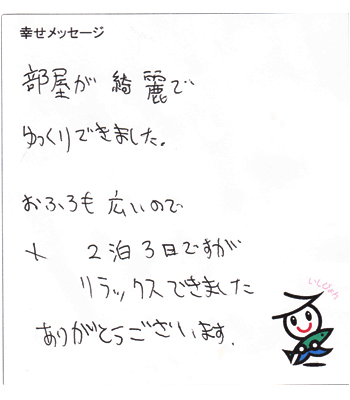 幸せメッセージ
部屋が 綺麗で
ゆっくりできました。
おふろも 広いので
2泊3日ですが
リラックスできました
ありがとうございます.